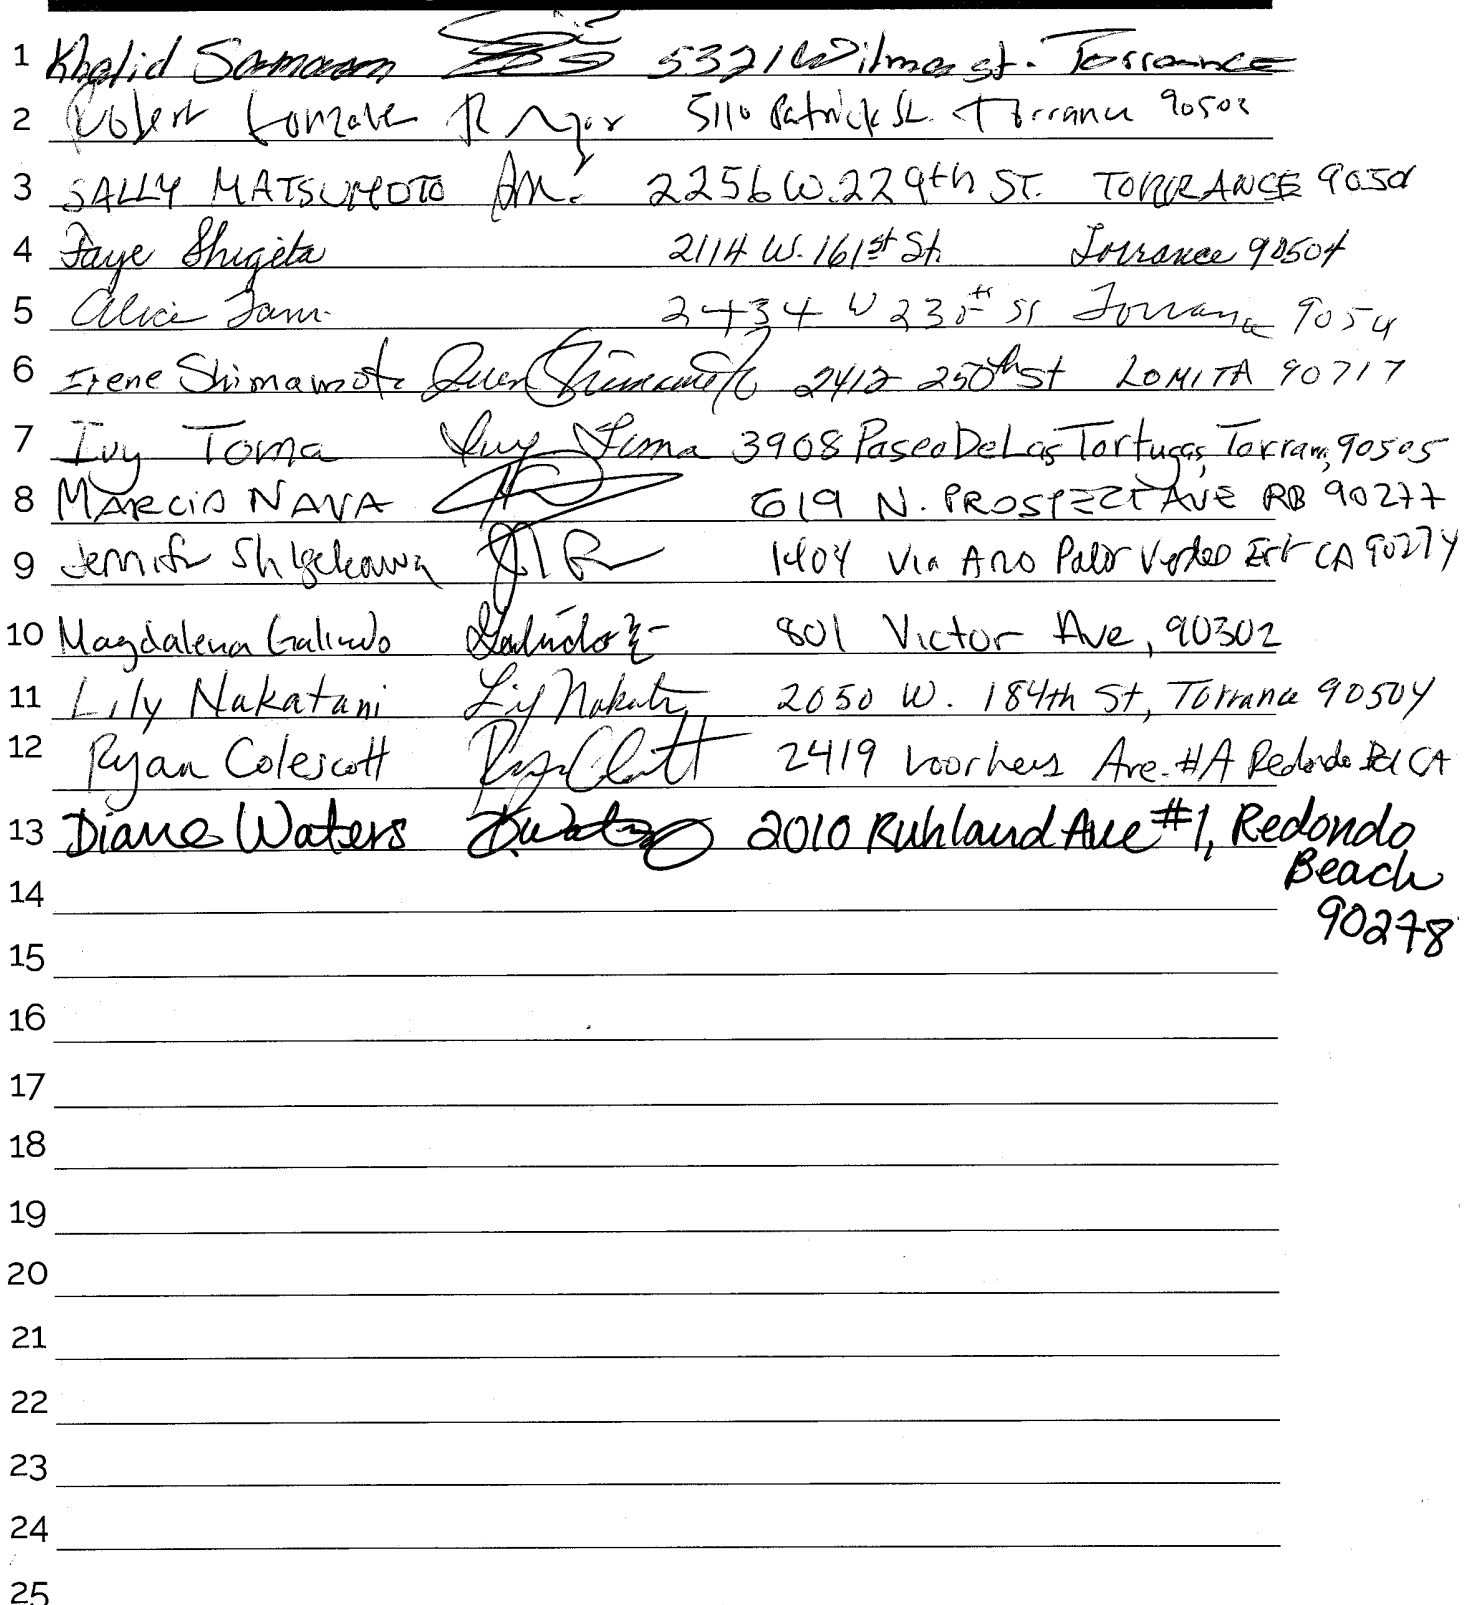 1 Khalid Samaan 5321 Wilma st. Torrance
2 Robert Gonzalez 5110 Patrick St. Torrance 90503
3 SALLY MATSUMOTO 2256 W. 229th ST. TORRANCE 90501
4 Faye Shigeta 2114 W. 161st St. Torrance 90504
5 Alice 2434 W 23 St Torrance
6 Irene Shimamoto Irene Shimamoto 2412 250th St LOMITA 90717
7 Ivy Toma Ivy Toma 3908 Paseo De Las Tortugas, Torrance, 90505
8 MARCIA NAVA 619 N. PROSPECT AVE RB 90277
9 Jennifer Shigekawa 1404 Via Palos Verdes Est CA 90274
10 Magdalena Galindo Galindo 801 Victor Ave, 90302
11 Lily Nakatani Lily Nakatani 2050 W. 184th St, Torrance 90504
12 Ryan Colescott 2419 Voorhees Ave. #A Redondo Bch CA
13 Diane Waters D. Waters 2010 Ruhland Ave #1, Redondo
Beach
14
90278
15
16
17
18
19
20
21
22
23
24
25